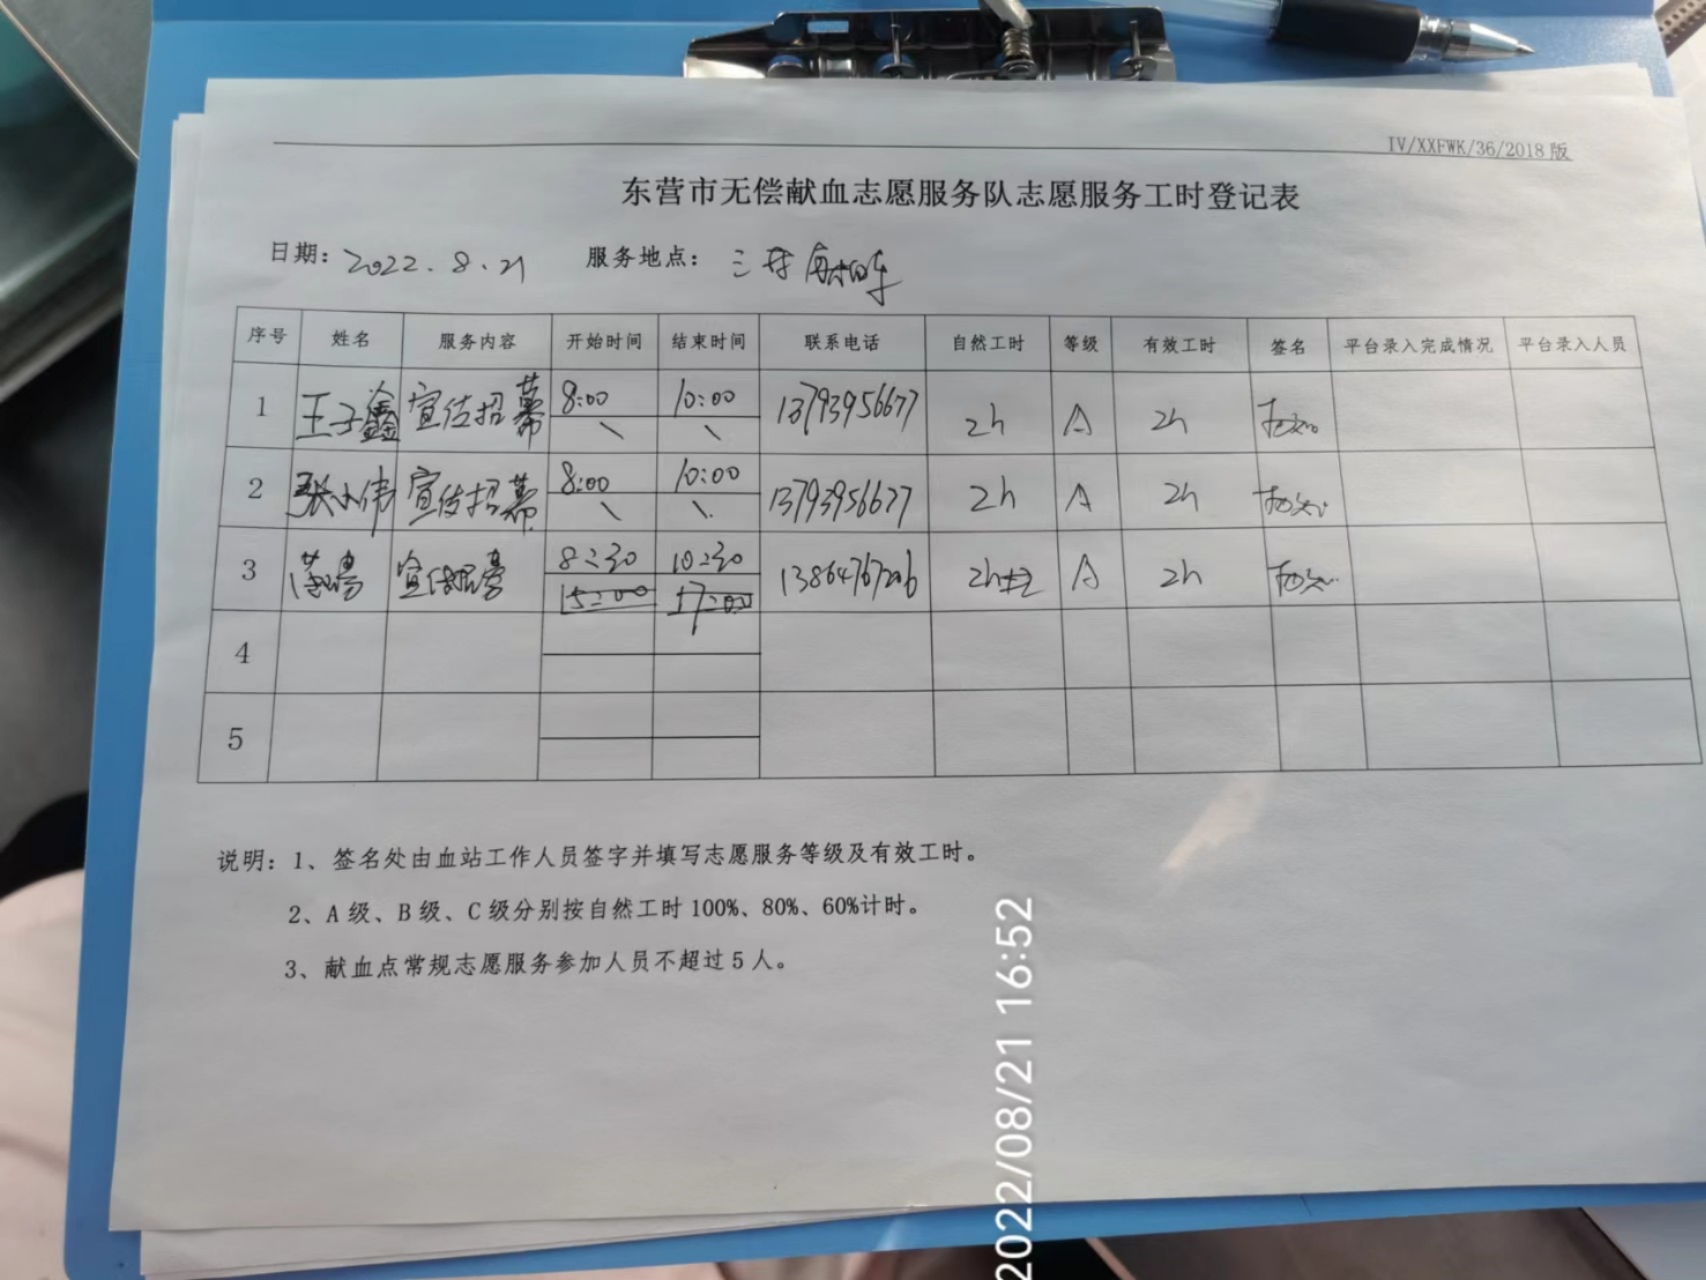 IV/XXFWK/36/2018版
东营市无偿献血志愿服务队志愿服务工时登记表
日期: 2022.8.21 服务地点: 三村
序号 姓名 服务内容 开始时间 结束时间 联系电话 自然工时 等级 有效工时 签名 平台录入完成情况 平台录入人员
1 王子鑫 宣传招募 8:00 10:00 13793956677 2h A 2h
\ \
2 张小伟 宣传招募 8:00 10:00 13793956677 2h A 2h
\ \
3 宣传招募 8:30 10:30 13864767206 2h A 2h
15:00 17:00
4
5
说明: 1、签名处由血站工作人员签字并填写志愿服务等级及有效工时。
2、A级、B级、C级分别按自然工时100%、80%、60%计时。
3、献血点常规志愿服务参加人员不超过5人。
2022/08/21 16:52